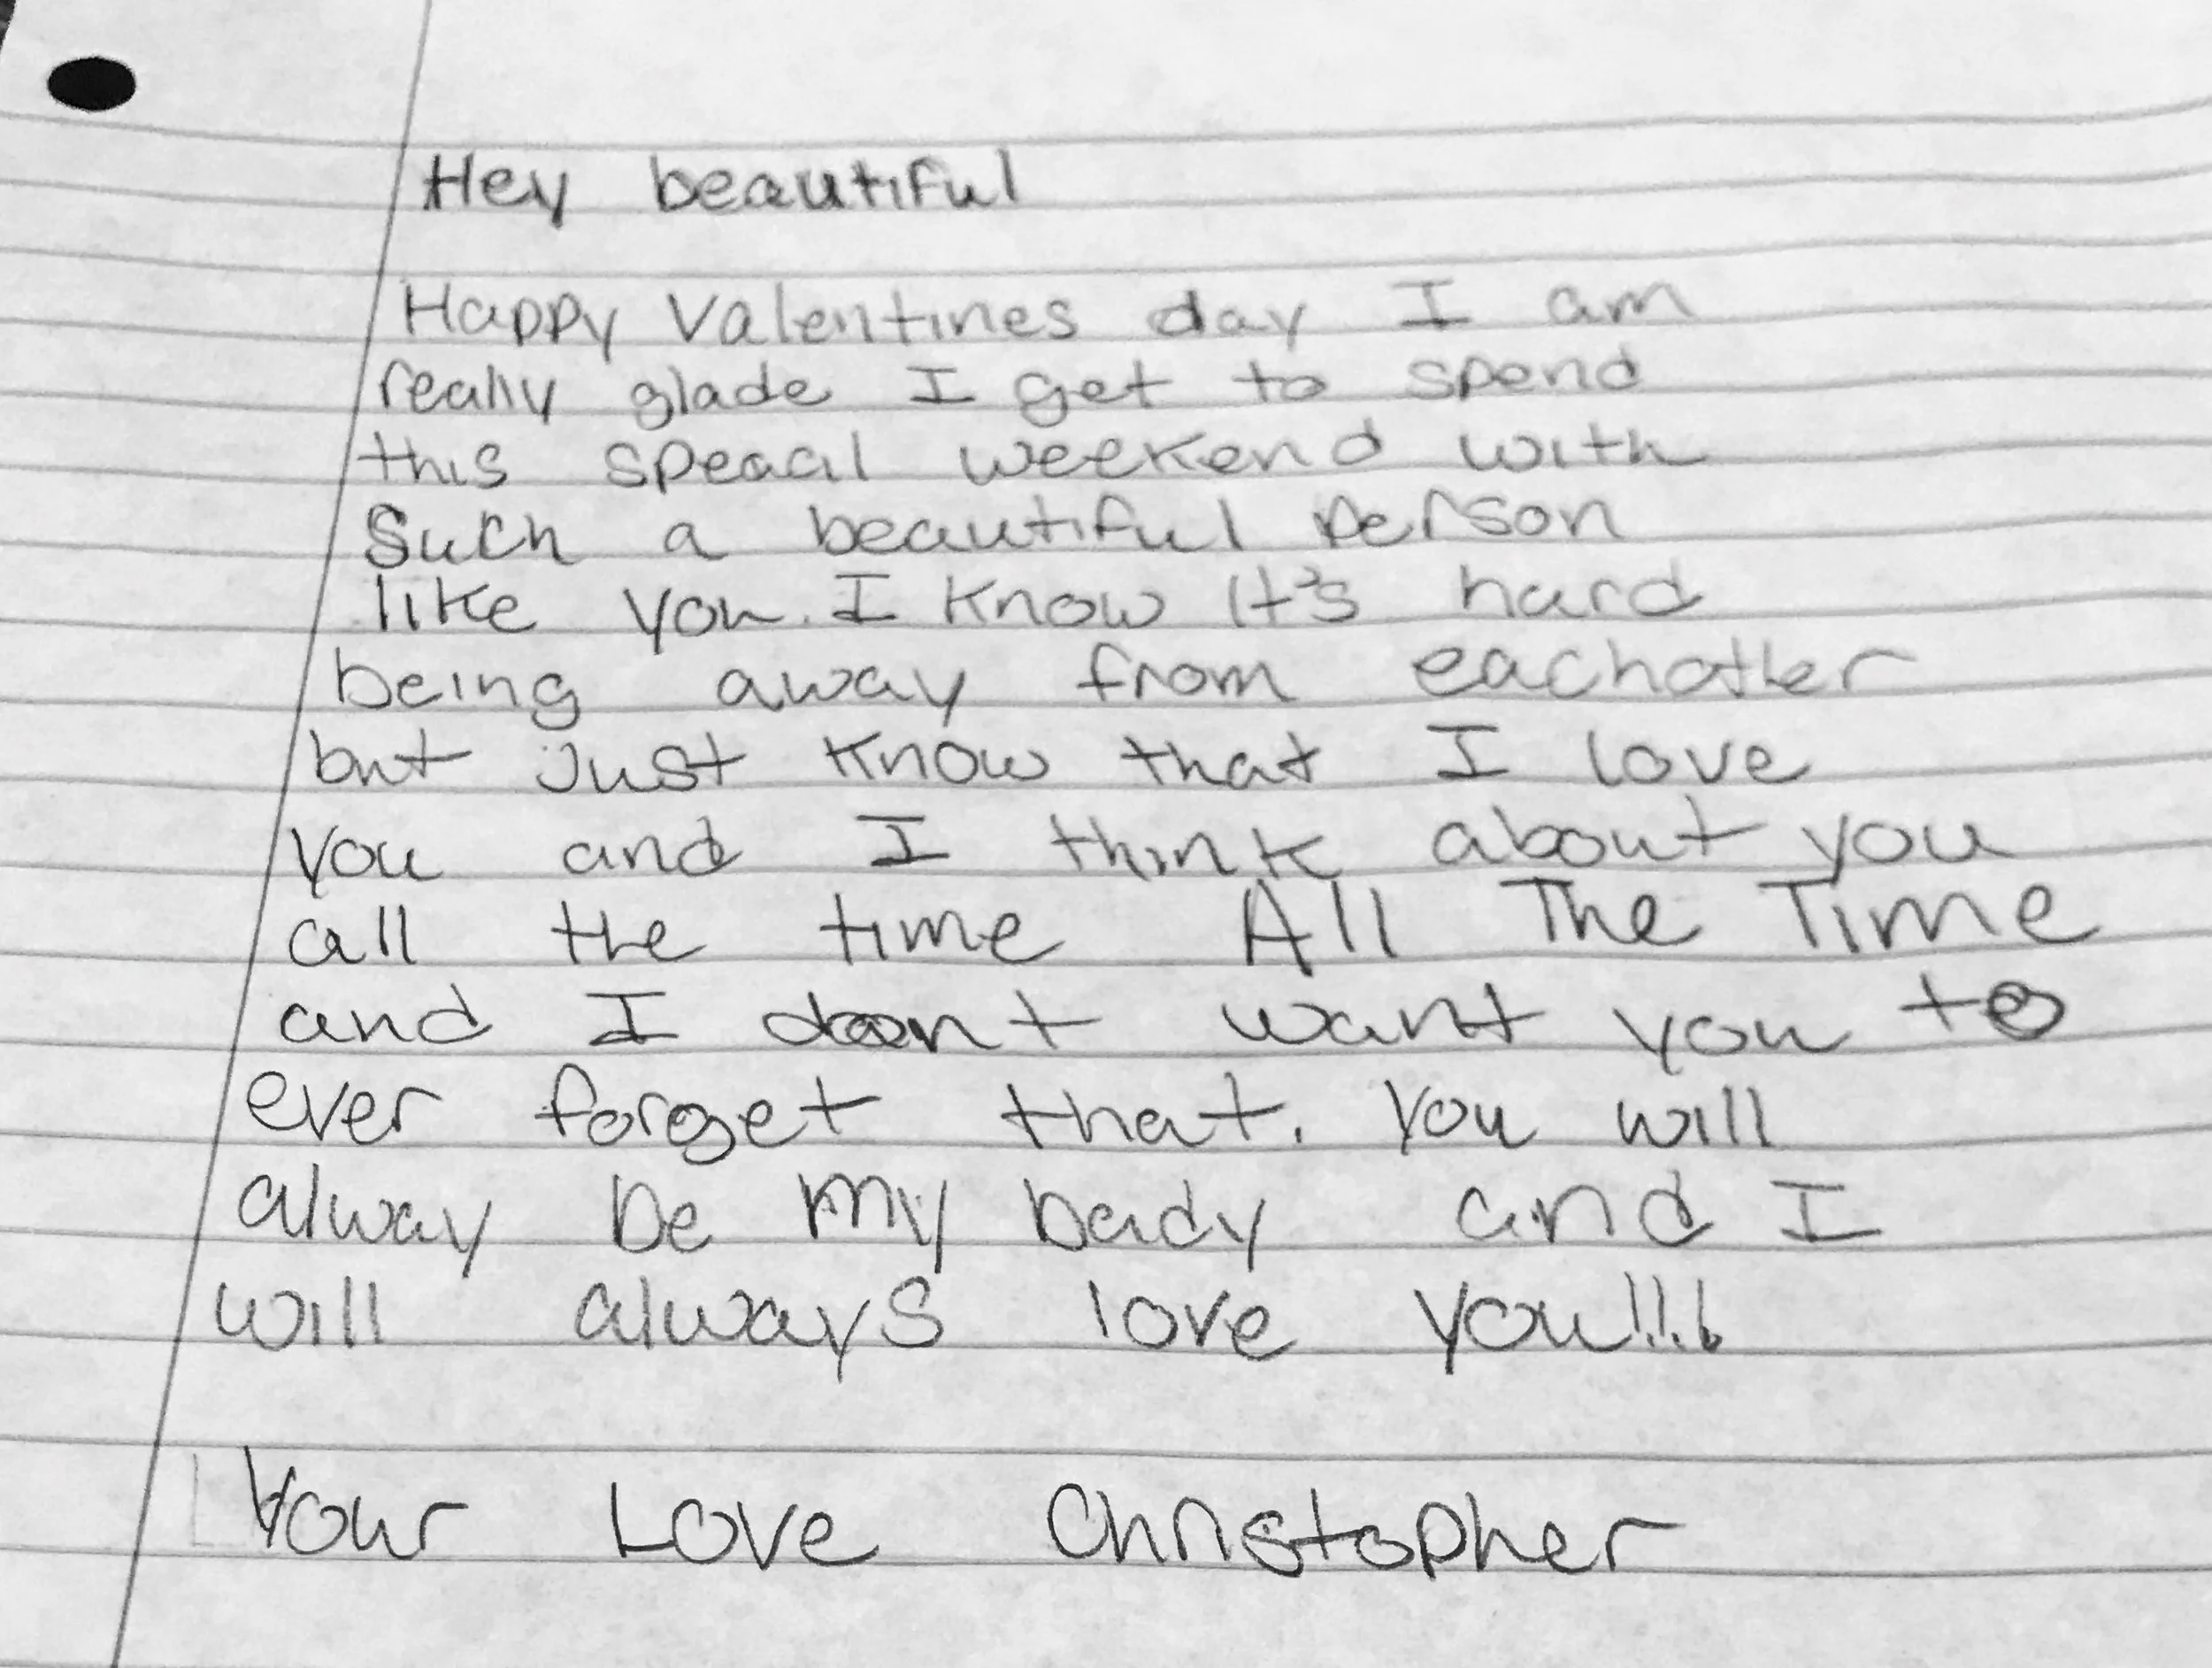 Hey beautiful
Happy Valentines day I am
really glade I get to spend
this speacil weekend with
Such a beautiful person
like you. I know It's hard
being away from eachother
but Just know that I love
you and I think about you
all the time All The Time
and I dont want you to
ever forget that. You will
alway be my bady and I
will always love you!!!!
Your Love Christopher